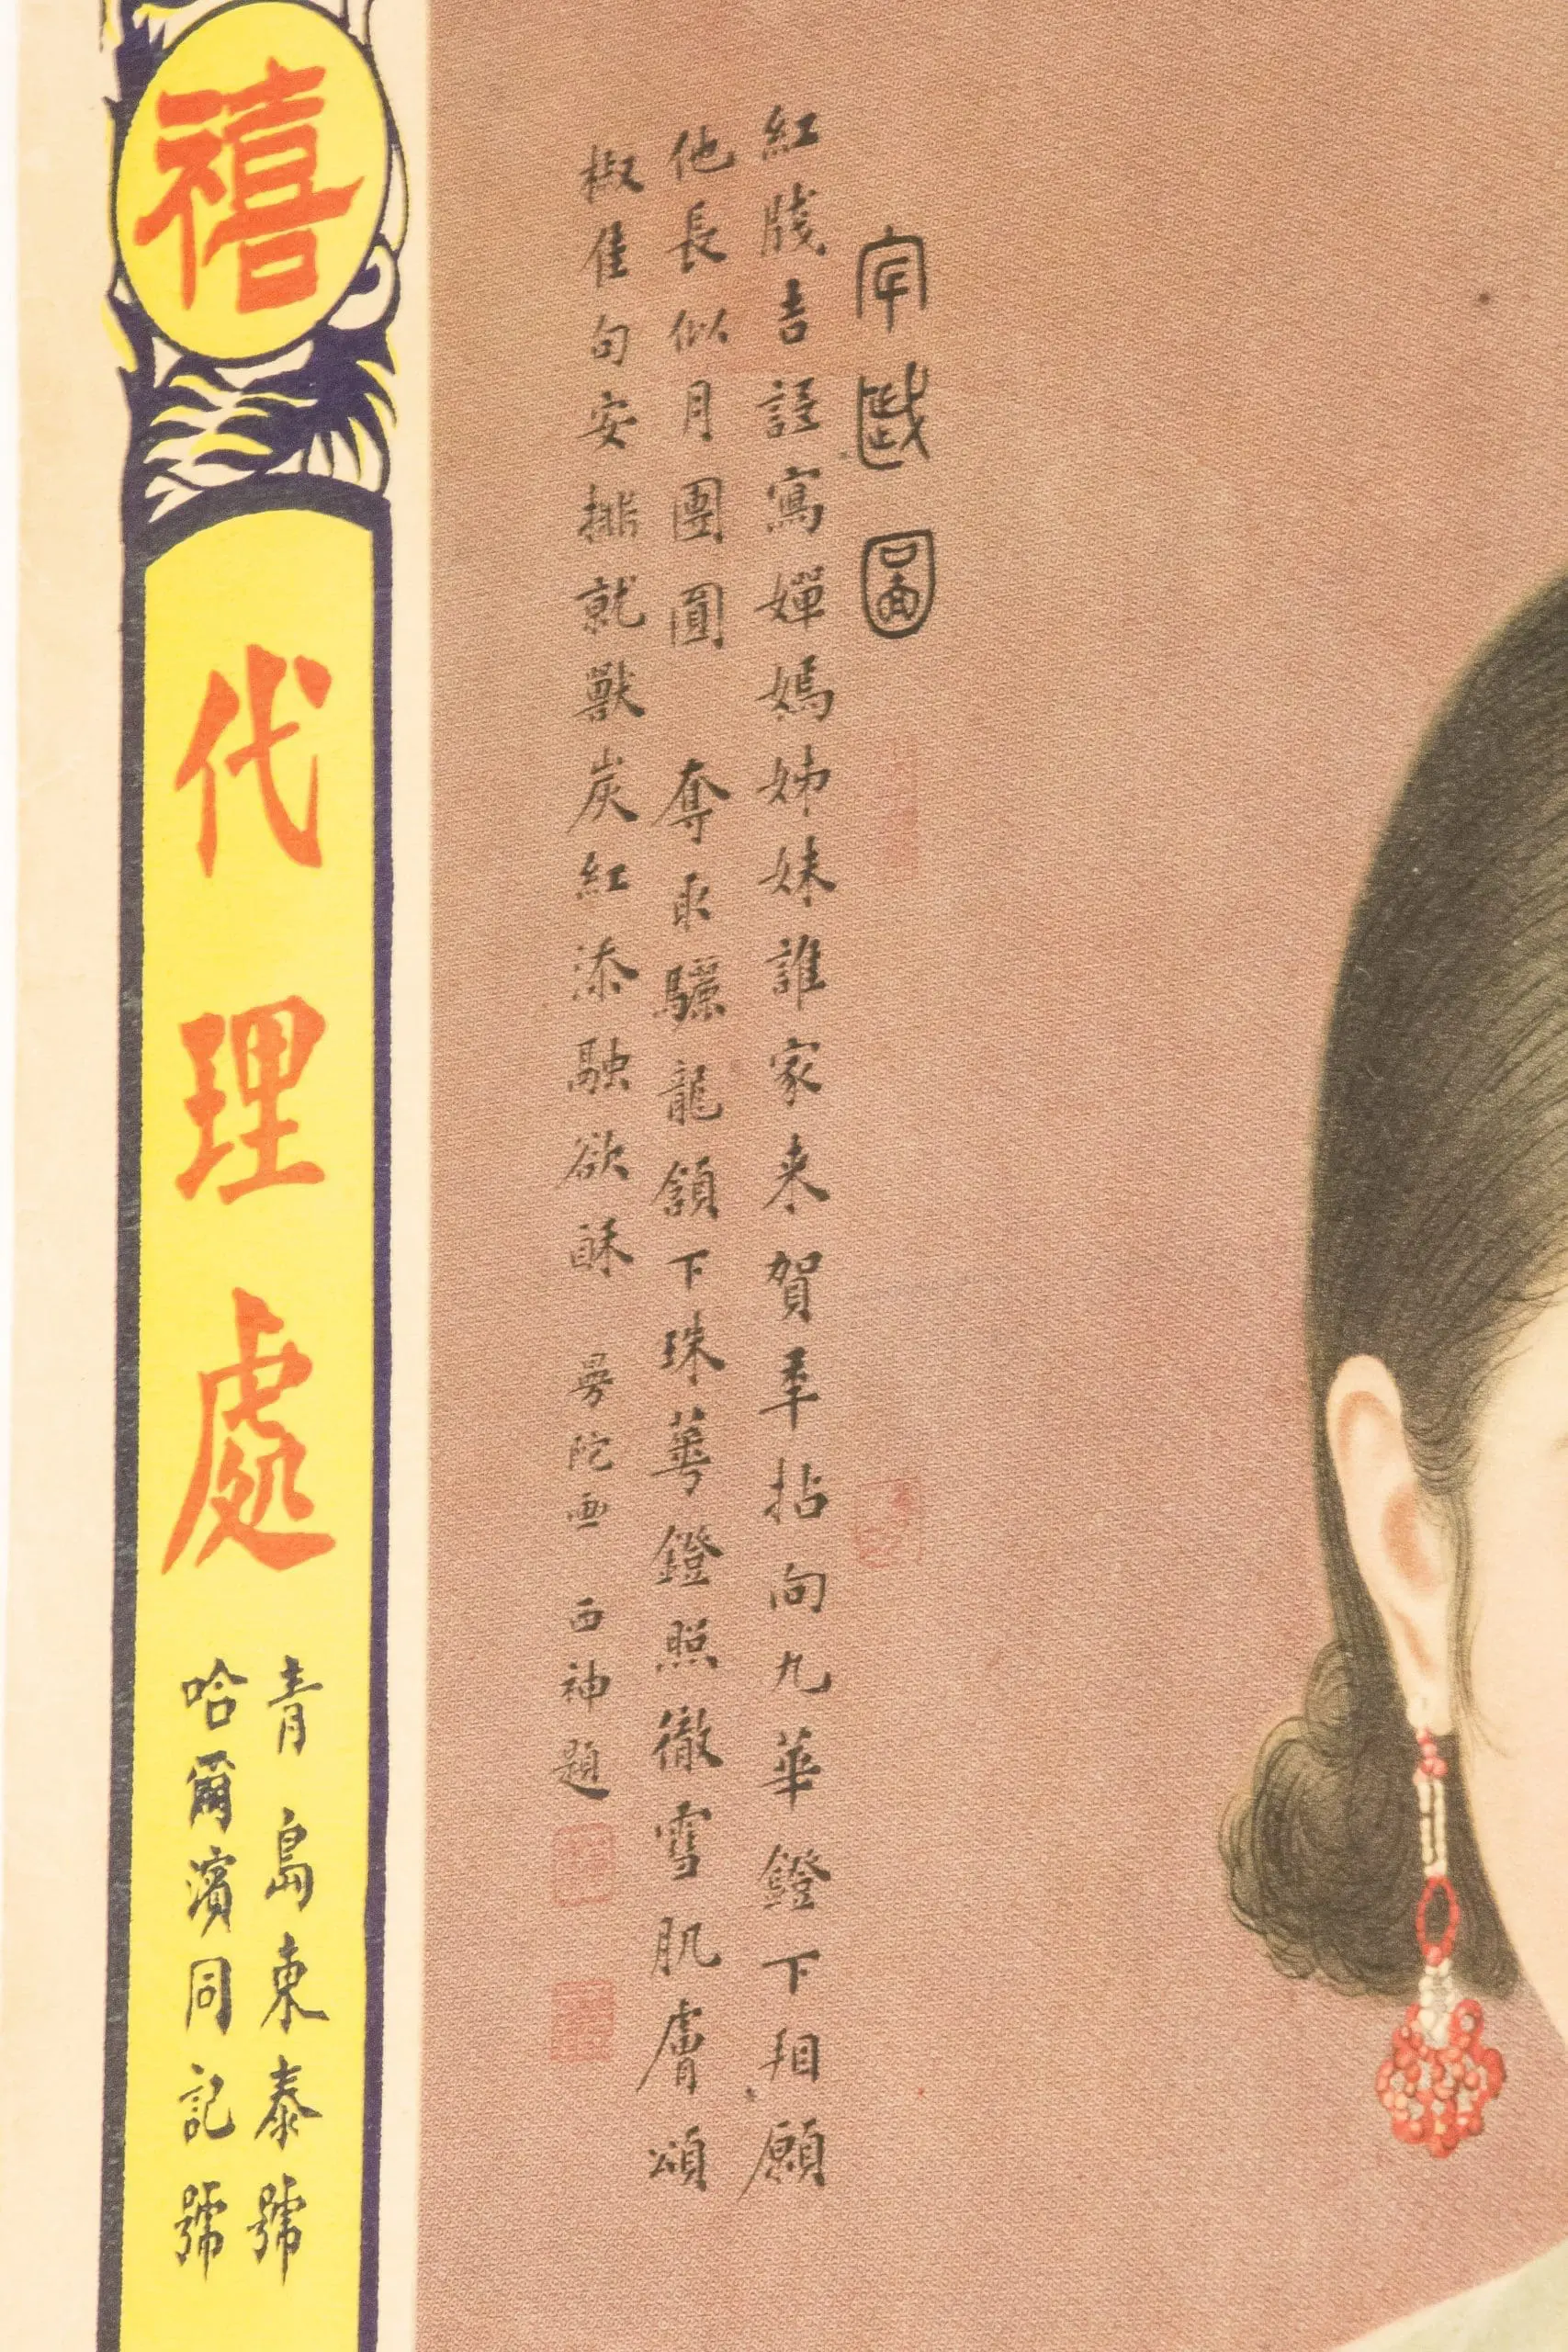 守歲圖
紅牋吉語寫嬋嫣姊妹誰家来賀秊拈向九華鐙下相願
他長似月團圓 奪取驪龍頷下珠華鐙照徹雪肌膚頌
椒佳句安排就獸炭紅添融欲酥 曼陀画 西神題
禧
代理處
青島東泰號
哈爾濱同記號